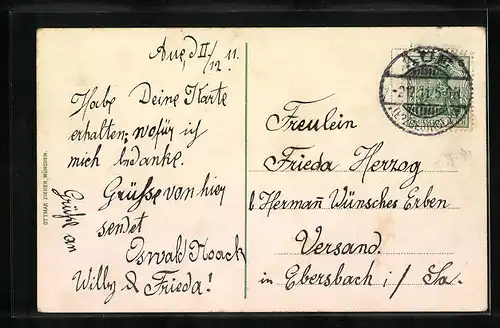 Aue, d II/12 11.
Habe Deine Karte
erhalten, wofür ich
mich bedanke.
Grüsse von hier
sendet
Oswald Noack
Grüße an
Willy & Frieda!
OTTMAR ZIEHER, MÜNCHEN.
AUE
-2.12.11. 5-6 N
(ERZGEBIRGE)
Freulein
Frieda Herzog
b. Hermañ Wünsches Erben
Versand.
in Ebersbach i/ Sa.